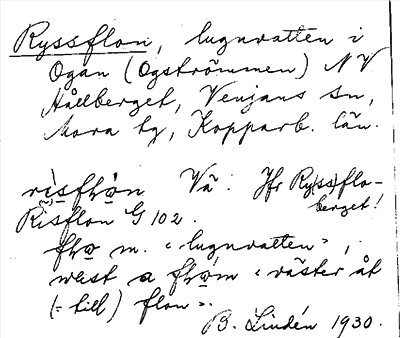 Ryssflon, lugnvatten i
Ogan (Ogströmmen) NV
Hållberget, Venjans sn,
Mora tg, Kopparb. län.
Vä: Jfr Ry(s)sflo-
berget!
Risflon G 102.
m. "lugnvatten",
väst a "väster åt
(= till) flon".
B. Lindén 1930.